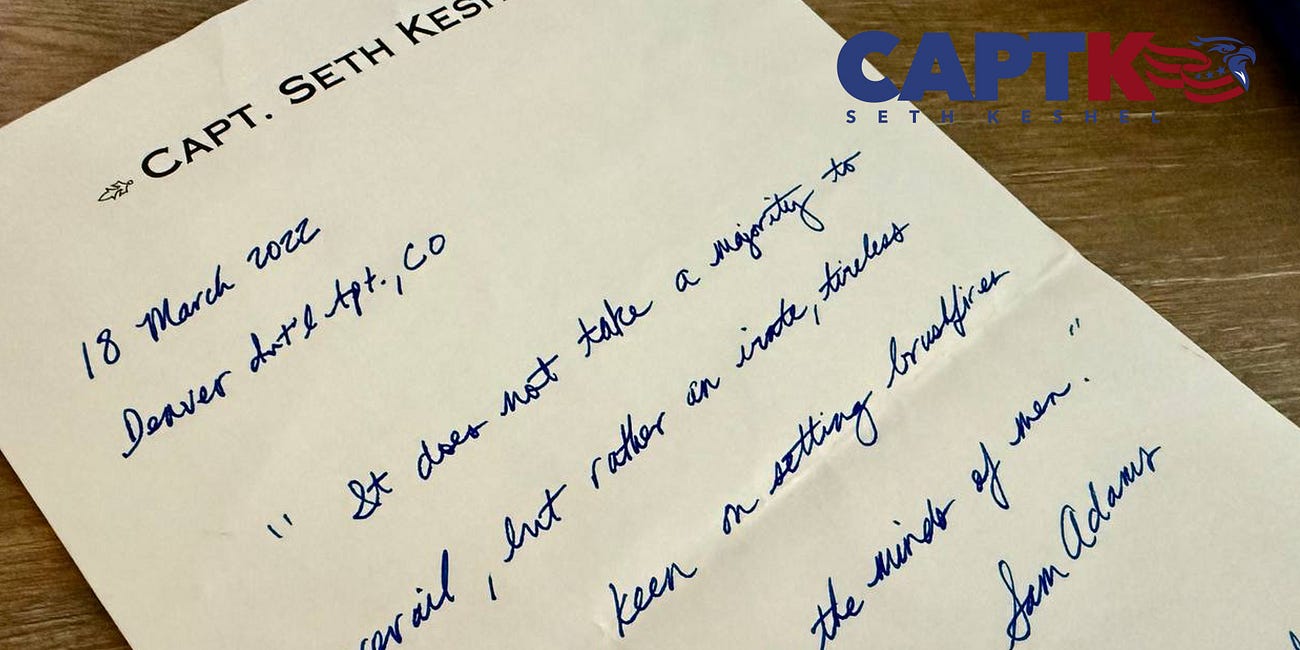 CAPT. SETH KESH
CAPTK
SETH KESHEL
18 March 2022
Denver Int'l Apt., CO
" It does not take a majority to
evail, but rather an irate, tireless
keen on setting brushfires
the minds of men."
Sam Adams